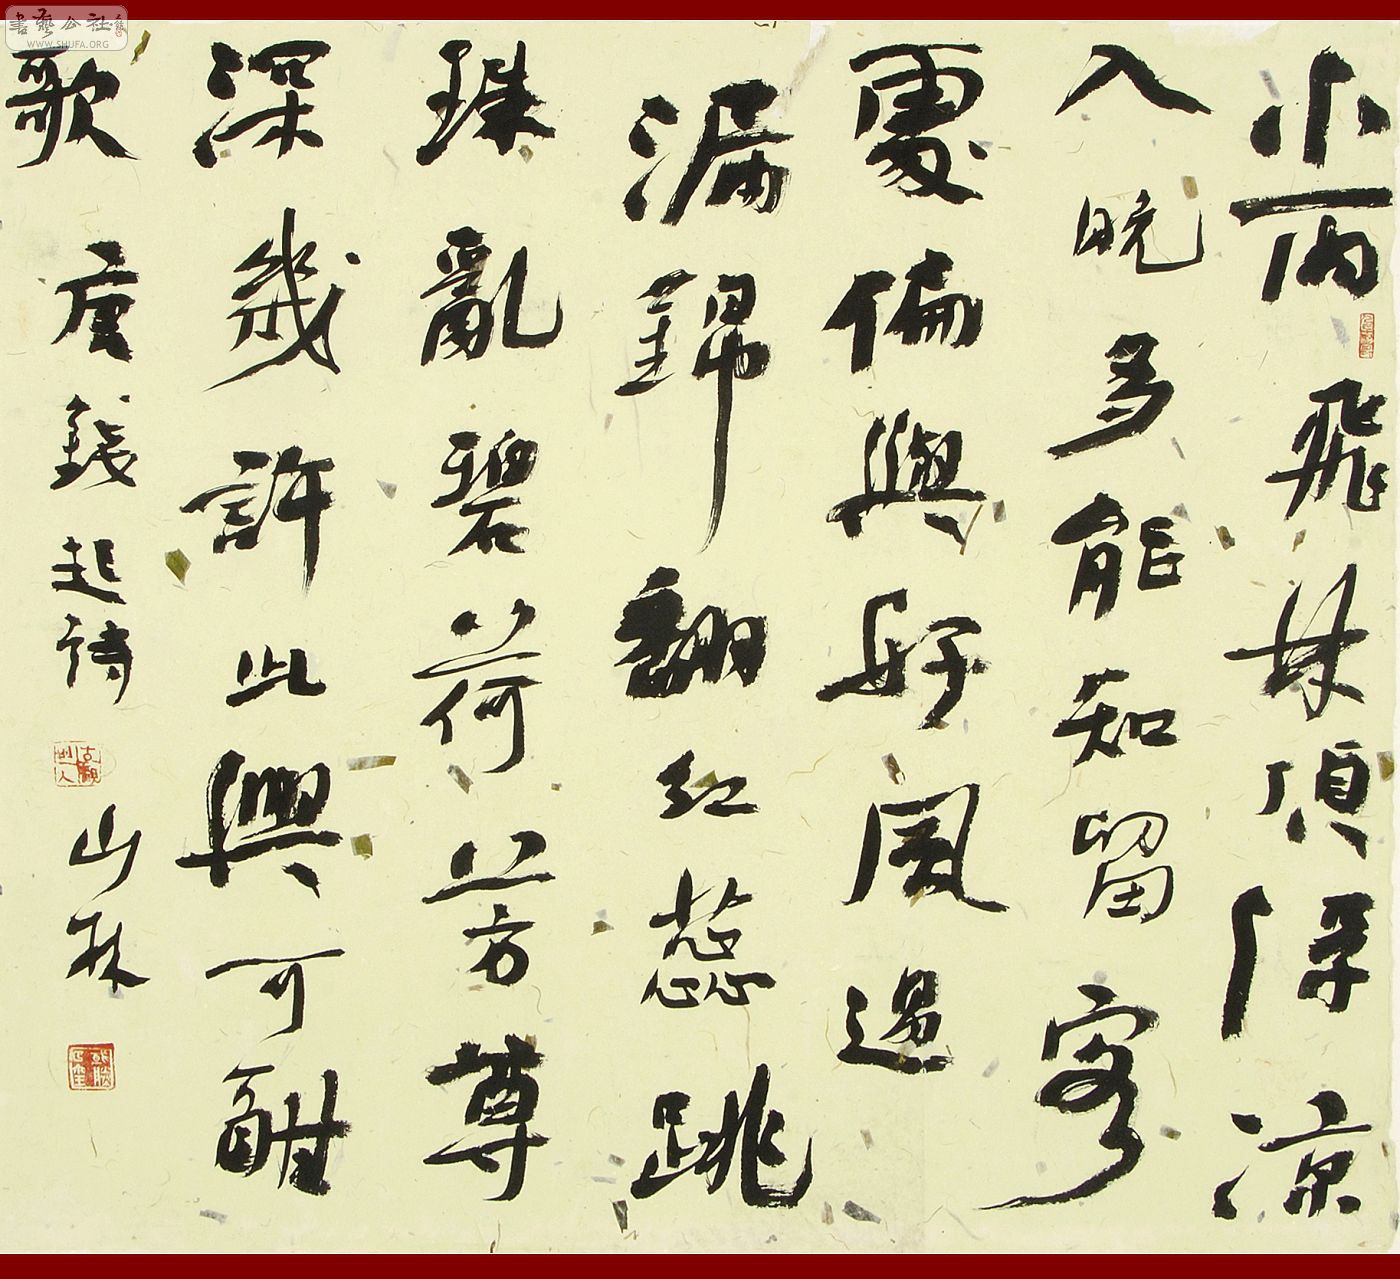 小雨飛林頂浮凉
入晚多能知留客
處偏與好風過
漏錦翻紅蕊跳
珠亂碧荷芳尊
深幾許此興可酣
歌唐錢起詩
山林
書藝公社
WWW.SHUFA.ORG